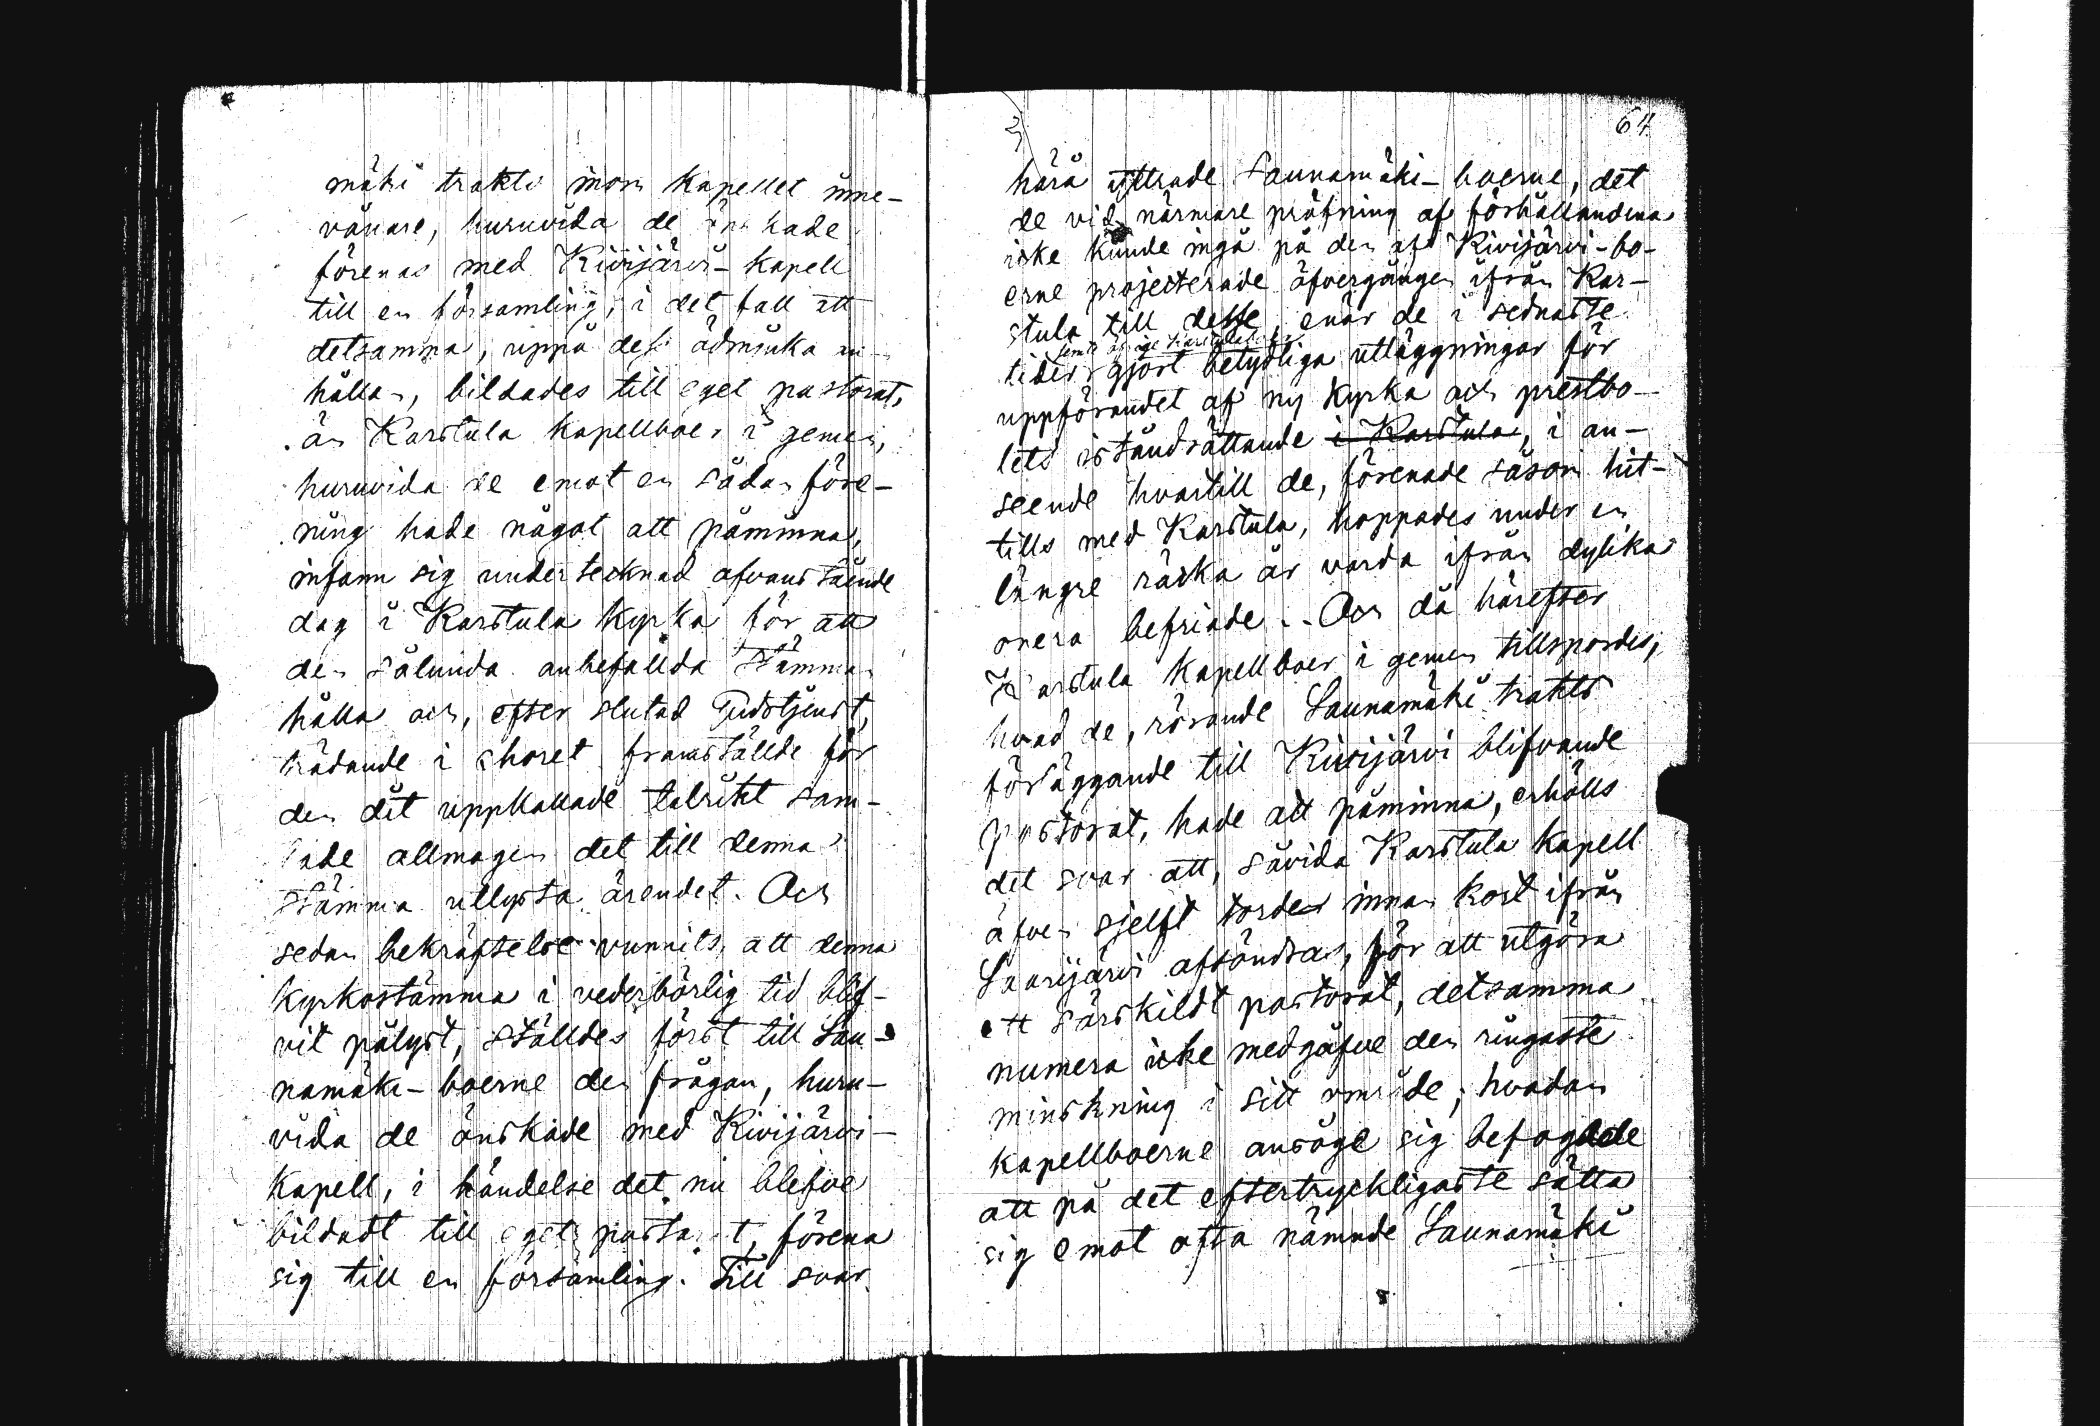 mäki trakts inom Kapellet inne-
vånare, huruvida de önskade
förenas med Kivijärvi-Kapell
till en församling, i det fall att
detsamma, uppå dess ödmjuka an-
hållan, bildades till eget pastorat,
än Karstula Kapellboer i gemen,
huruvida de emot en sådan före-
ning hade något att påminna,
infann sig undertecknad ofvanstående
dag i Karstula Kyrka för att
den sålunda anbefallda Stämman
hålla och, efter slutad Gudstjenst,
trädande i choret framställde för
den dit uppkallade talrikt sam-
lade allmogen det till denna
Stämma utlysta ärendet. Och
sedan bekräftelse vunnits, att denna
Kyrkostämma i vederbörlig tid blif-
vit pålyst, ställdes först till Sau-
namäki-boerne den frågan, huru-
vida de önskade med Kivijärvi-
Kapell, i händelse det nu blefve
bildadt till eget pastorat, förena
sig till en församling. Till svar
64
härå yttrade Saunamäki-boerne, det
de vid närmare pröfning af förhållandena
icke kunde ingå på den af Kivijärvi-bo-
erne projecterade öfvergången ifrån Kar-
stula till desse, enär de i sednaste
jemte öfrige Karstulaboer
tider gjort betydliga utläggningar för
uppförandet af ny Kyrka och prestbo-
lets iståndsättande i Karstula, i an-
seende hvartill de, förenade såsom hit-
tills med Karstula, hoppades under en
längre räcka år varda ifrån dylika
onera befriade. Och då härefter
Karstula Kapellboer i gemen tillspordes,
hvad de, rörande Saunamäki trakts
förläggande till Kivijärvi blifvande
pastorat, hade att påminna, erhölls
det svar att, såvida Karstula Kapell
äfven sjelft torde innan kort ifrån
Saarijärvi afsöndras, för att utgöra
ett särskildt pastorat, detsamma
numera icke medgåfve den ringaste
minskning i sitt område; hvadan
Kapellboerne ansåge sig befogade
att på det eftertryckligaste sätta
sig emot ofta nämnde Saunamäki